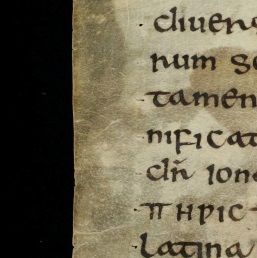 · cliuens
num se
· tamen
nificat
· clñ ion
· π ηριc
· latina